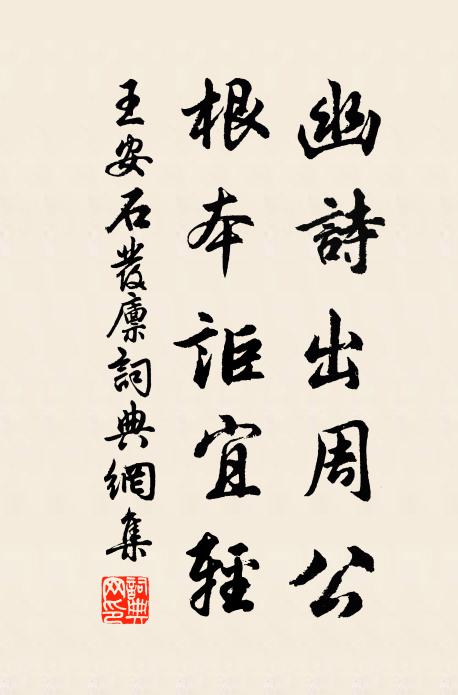 幽詩出周公
根本詎宜輕
王安石發廩詞典網集
詞典
网印